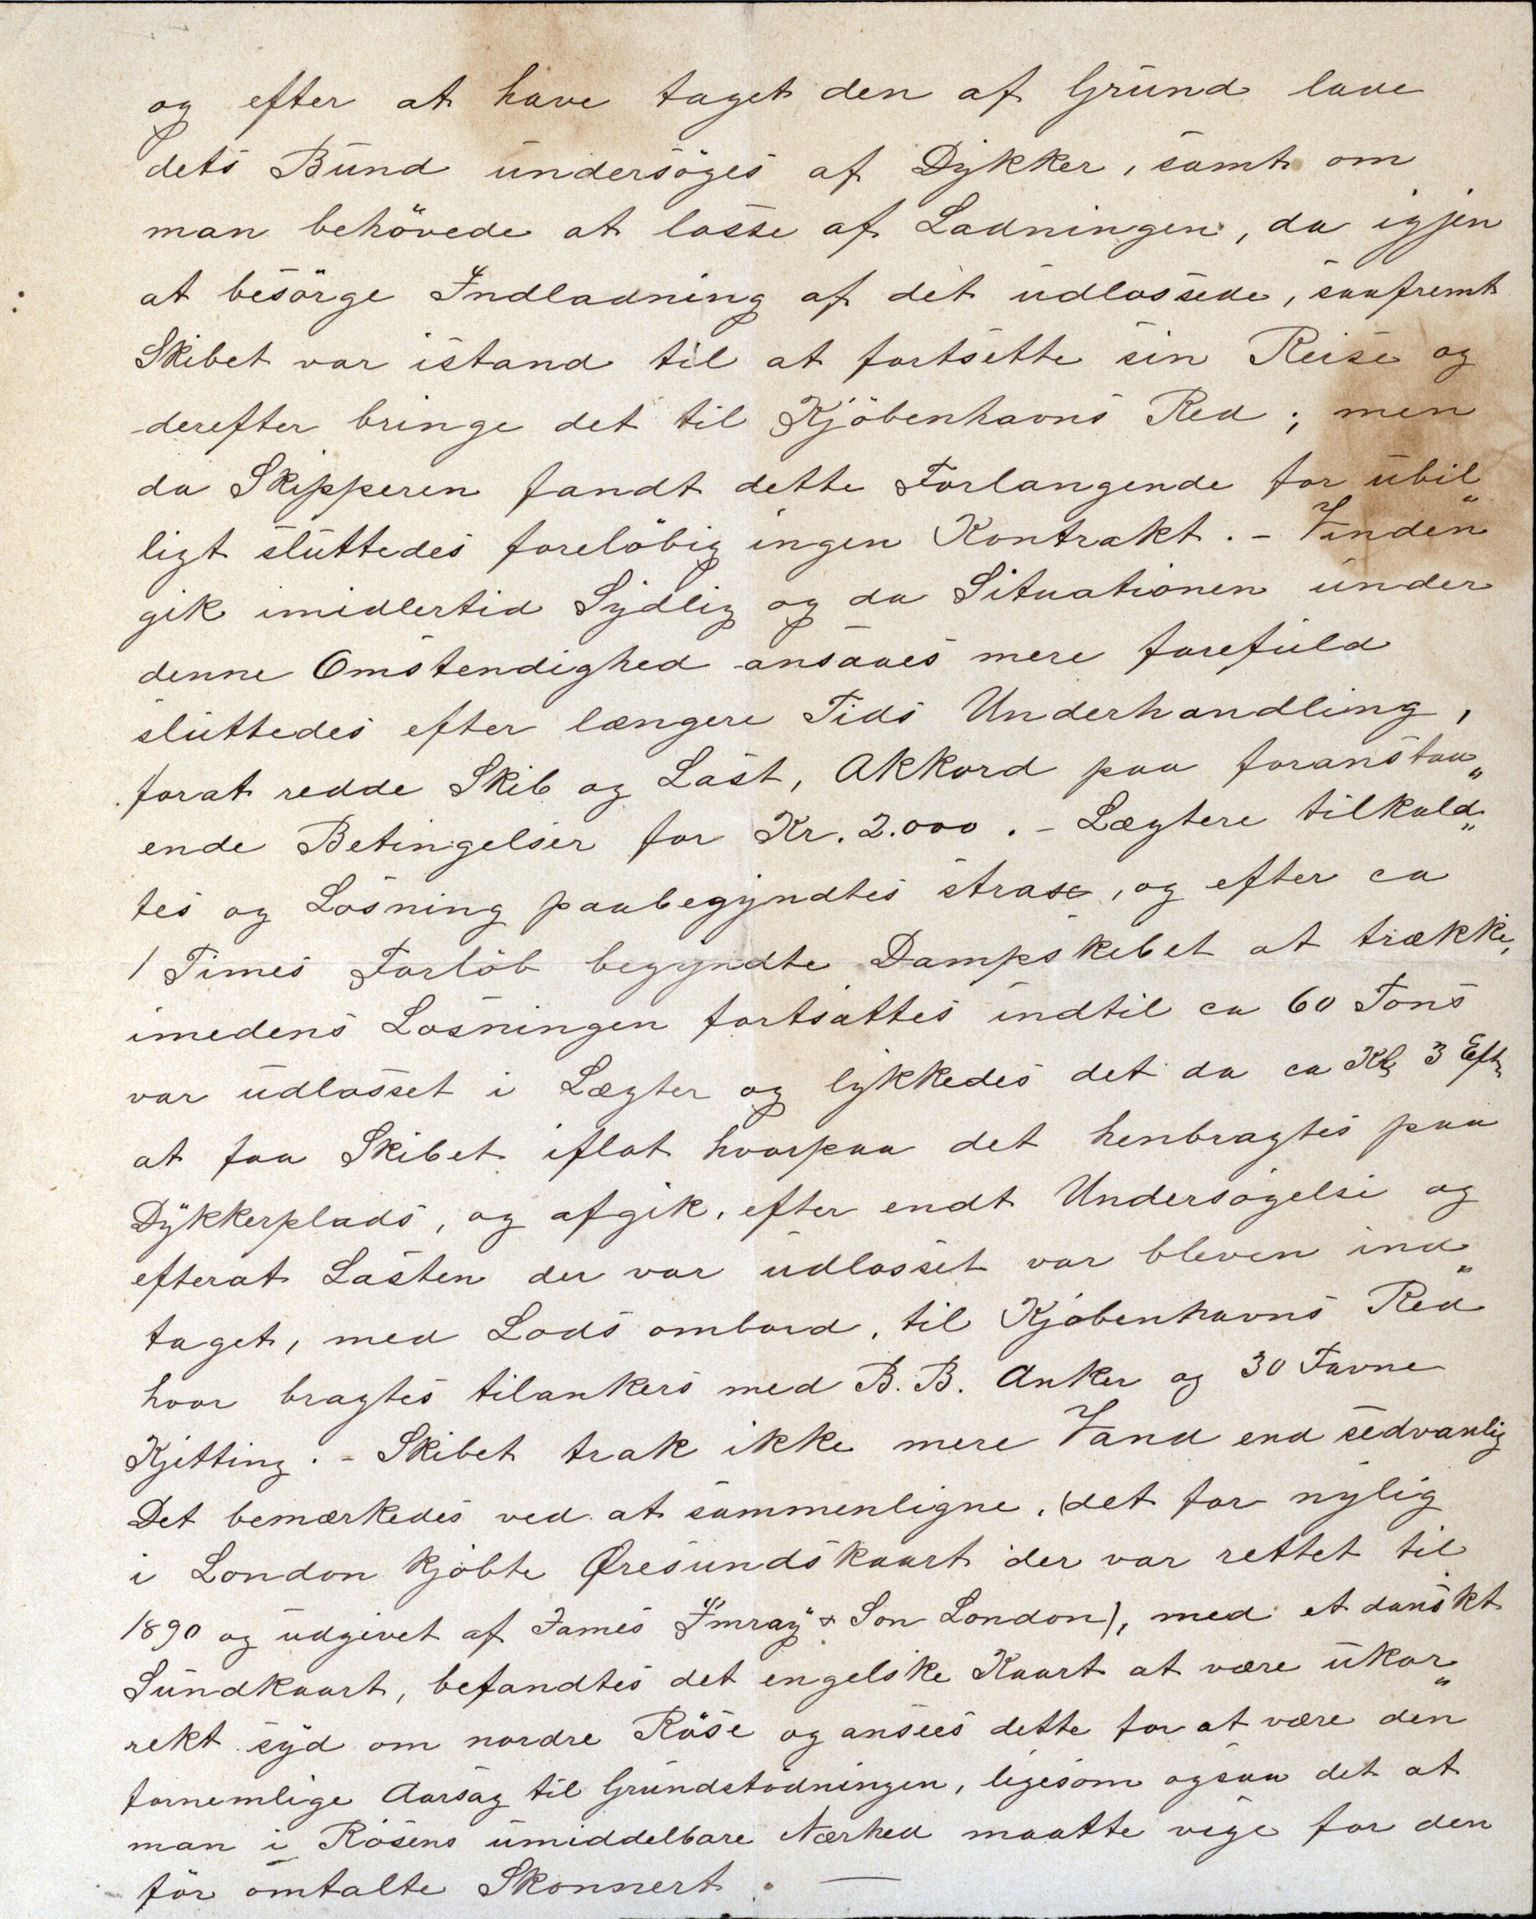 og efter at have taget den af Grund lave
dets Bund undersöges af Dykker, samt om
man behövede at losse af Ladningen, da igjen
at besörge Indladning af det udlossede, saafremt
Skibet var istand til at fortsette sin Reise og
derefter bringe det til Kjöbenhavns Red; men
da Skipperen fandt dette Forlangende for ubil„
ligt sluttedes foreløbig ingen Kontrakt. – Vinden
gik imidlertid Sydlig og da Situationen under
denne Omstendighed ansaaes mere farefuld
sluttedes efter længere Tids Underhandling,
forat redde Skib og Last, Akkord paa foranstaa„
ende Betingelser for Kr. 2.000. – Lægtere tilkald„
tes og Losning paabegyndtes strax, og efter ca
1 Times Forløb begyndte Dampskibet at trække,
imedens Losningen fortsattes indtil ca 60 Tons
var udlosset i Lægter og lykkedes det da ca Kl 3 Eft.
at faa Skibet iflot hvorpaa det henbragtes paa
Dykkerplads, og afgik, efter endt Undersøgelse og
efterat Lasten der var udlosset var bleven ind„
taget, med Lods ombord, til Kjøbenhavns Red
hvor bragtes tilankers med B. B. Anker og 30 Favne
Kjetting. – Skibet trak ikke mere Vand end sedvanlig
Det bemærkedes ved at sammenligne, (det for nylig
i London kjøbte Øresundskaart der var rettet til
1890 og udgivet af James Imray & Son London), med et danskt
Sundkaart, befandtes det engelske Kaart at være ukor„
rekt syd om nordre Röse og ansees dette for at være den
fornemlige Aarsag til Grundstødningen, ligesom ogsaa det at
man i Rösens umiddelbare Nærhed maatte vige for den
för omtalte Skonnert. —